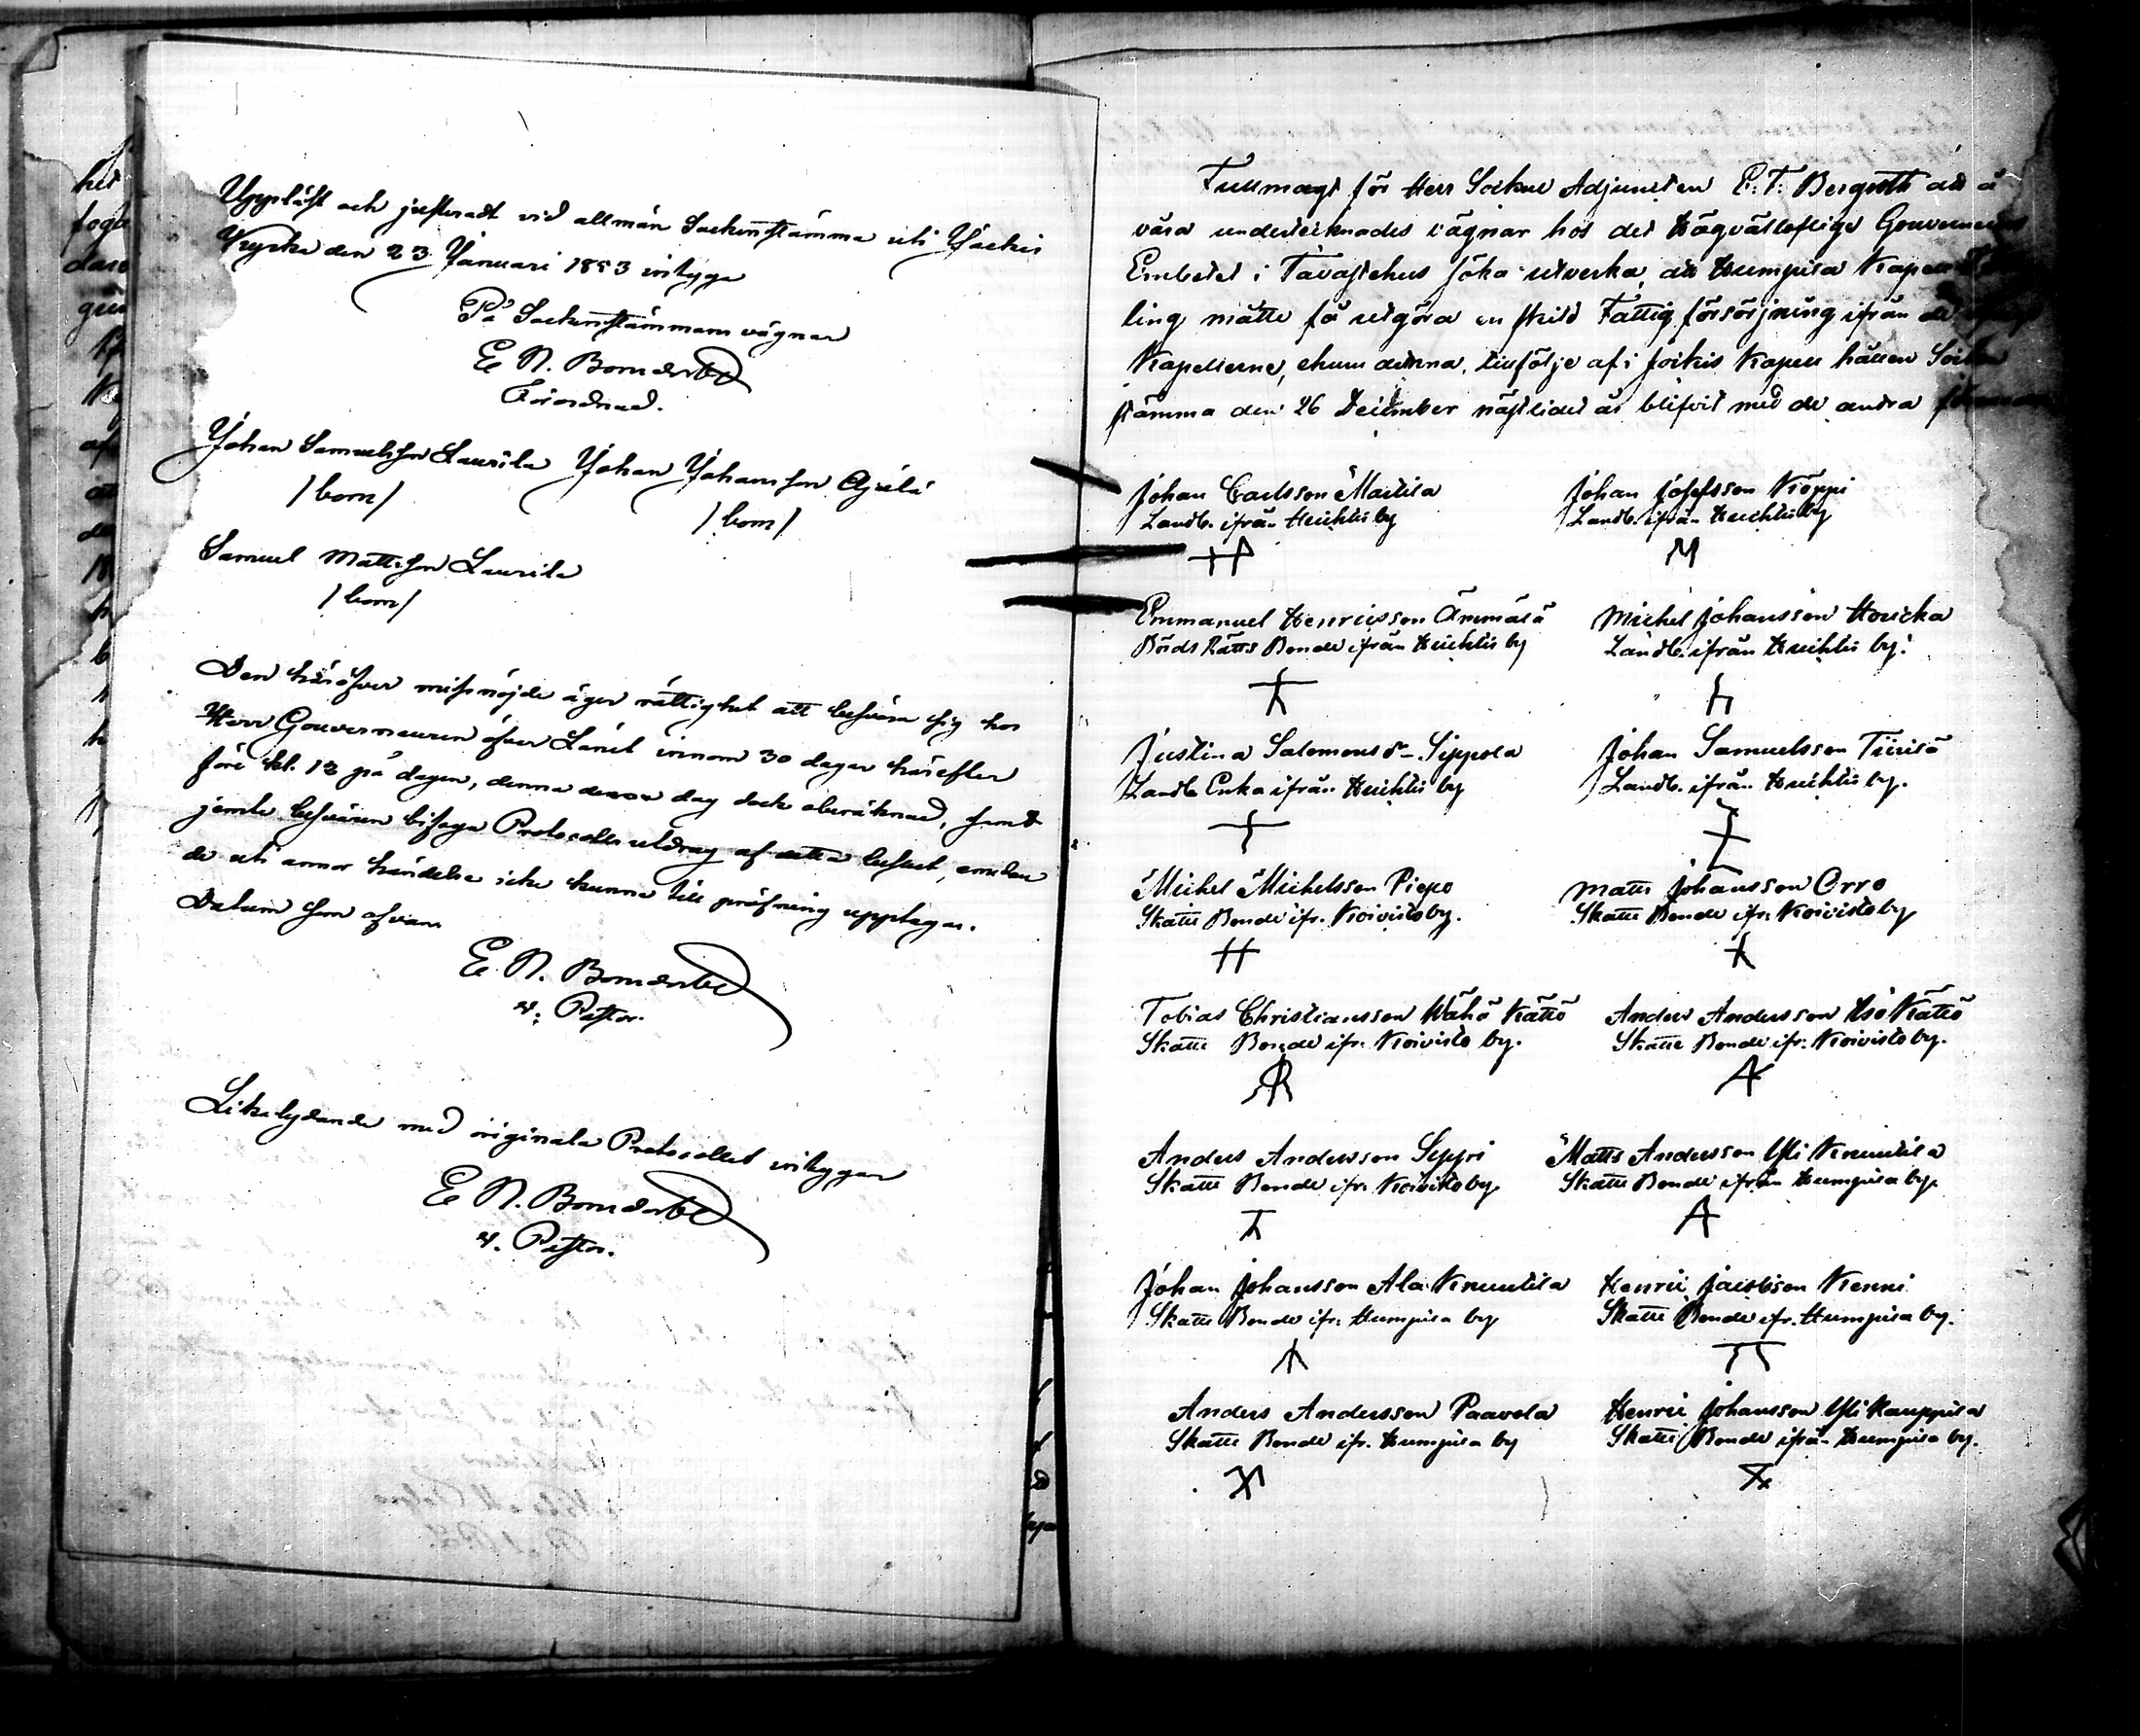 Uppläst och justeradt vid allmän Sockenstämma uti Jockis
Kyrka den 23 Januari 1853 intyga
På Sockenstämmans vägnar
E N. Bomansson
Förordnad.
Johan Samuelsson Laurila Johan Johansson Äijälä
/bom/ /bom/
Samuel Mattsson Laurila
/bom/
Den häröfver missnöjde äger rättighet att besvära sig hos
Herr Gouverneuren öfver Länet innom 30 dagar härefter
före kl. 12 på dagen, denna dag dock oberäknad, samt
jemte besvären bifoga Protocolls utdrag af detta beslut, emedan
de uti annor händelse icke kunna till pröfning upptagas.
Datum som ofvan
E. N.
v. Pastor.
Likalydande med originala Protocollet intygar
E N.
v. Pastor.
Fullmagt för Herr Sockne Adjuncten E. T. Bergroth att å
våra undertecknades vägnar hos det Högvällofliga Gouverneurs
Embetet i Tavastehus söka utverka, att Humpila Kapell
ling måtte få utgöra en skild Fattigförsörjning ifrån de
Kapellerne, ehuru denna, tillfölje af i Jockis Kapell hållen Socken
stämma den 26 December nästlidet år blifvit med de andra
Johan Carlsson Mattila Johan Josefsson Köppi
Landb. ifrån Huhtis by Landb. ifrån Huhtis by
Emmanuel Henricsson Ämmälä Michel Johansson Houcka
Börds Rätts Bonde ifrån Huhtis by Landb. ifrån Huhtis by.
Justina Salomonsdr Sippola Johan Samuelsson Tiirilä
Landb. Enka ifrån Huhtis by Landb. ifrån Huhtis by.
Michel Michelsson Piepo Matts Johansson Orro
Skatte Bonde ifr. Koivisto by. Skatte Bonde ifr. Koivisto by
Tobias Christiansson Wähä Kättö Anders Andersson Iso Kättö
Skatte Bonde ifr. Koivisto by. Skatte Bonde ifr. Koivisto by.
Anders Andersson Seppi Matts Andersson Yli Knuutila
Skatte Bonde ifr. Koivisto by Skatte Bonde ifrån Humpila by.
Johan Johansson Ala Knuutila Henric Jacobsson Kenni
Skatte Bonde ifr. Humpila by Skatte Bonde ifr. Humpila by.
Anders Andersson Paavola Henric Johansson Yli Kauppila
Skatte Bonde ifr. Humpila by Skatte Bonde ifrån Humpila by.